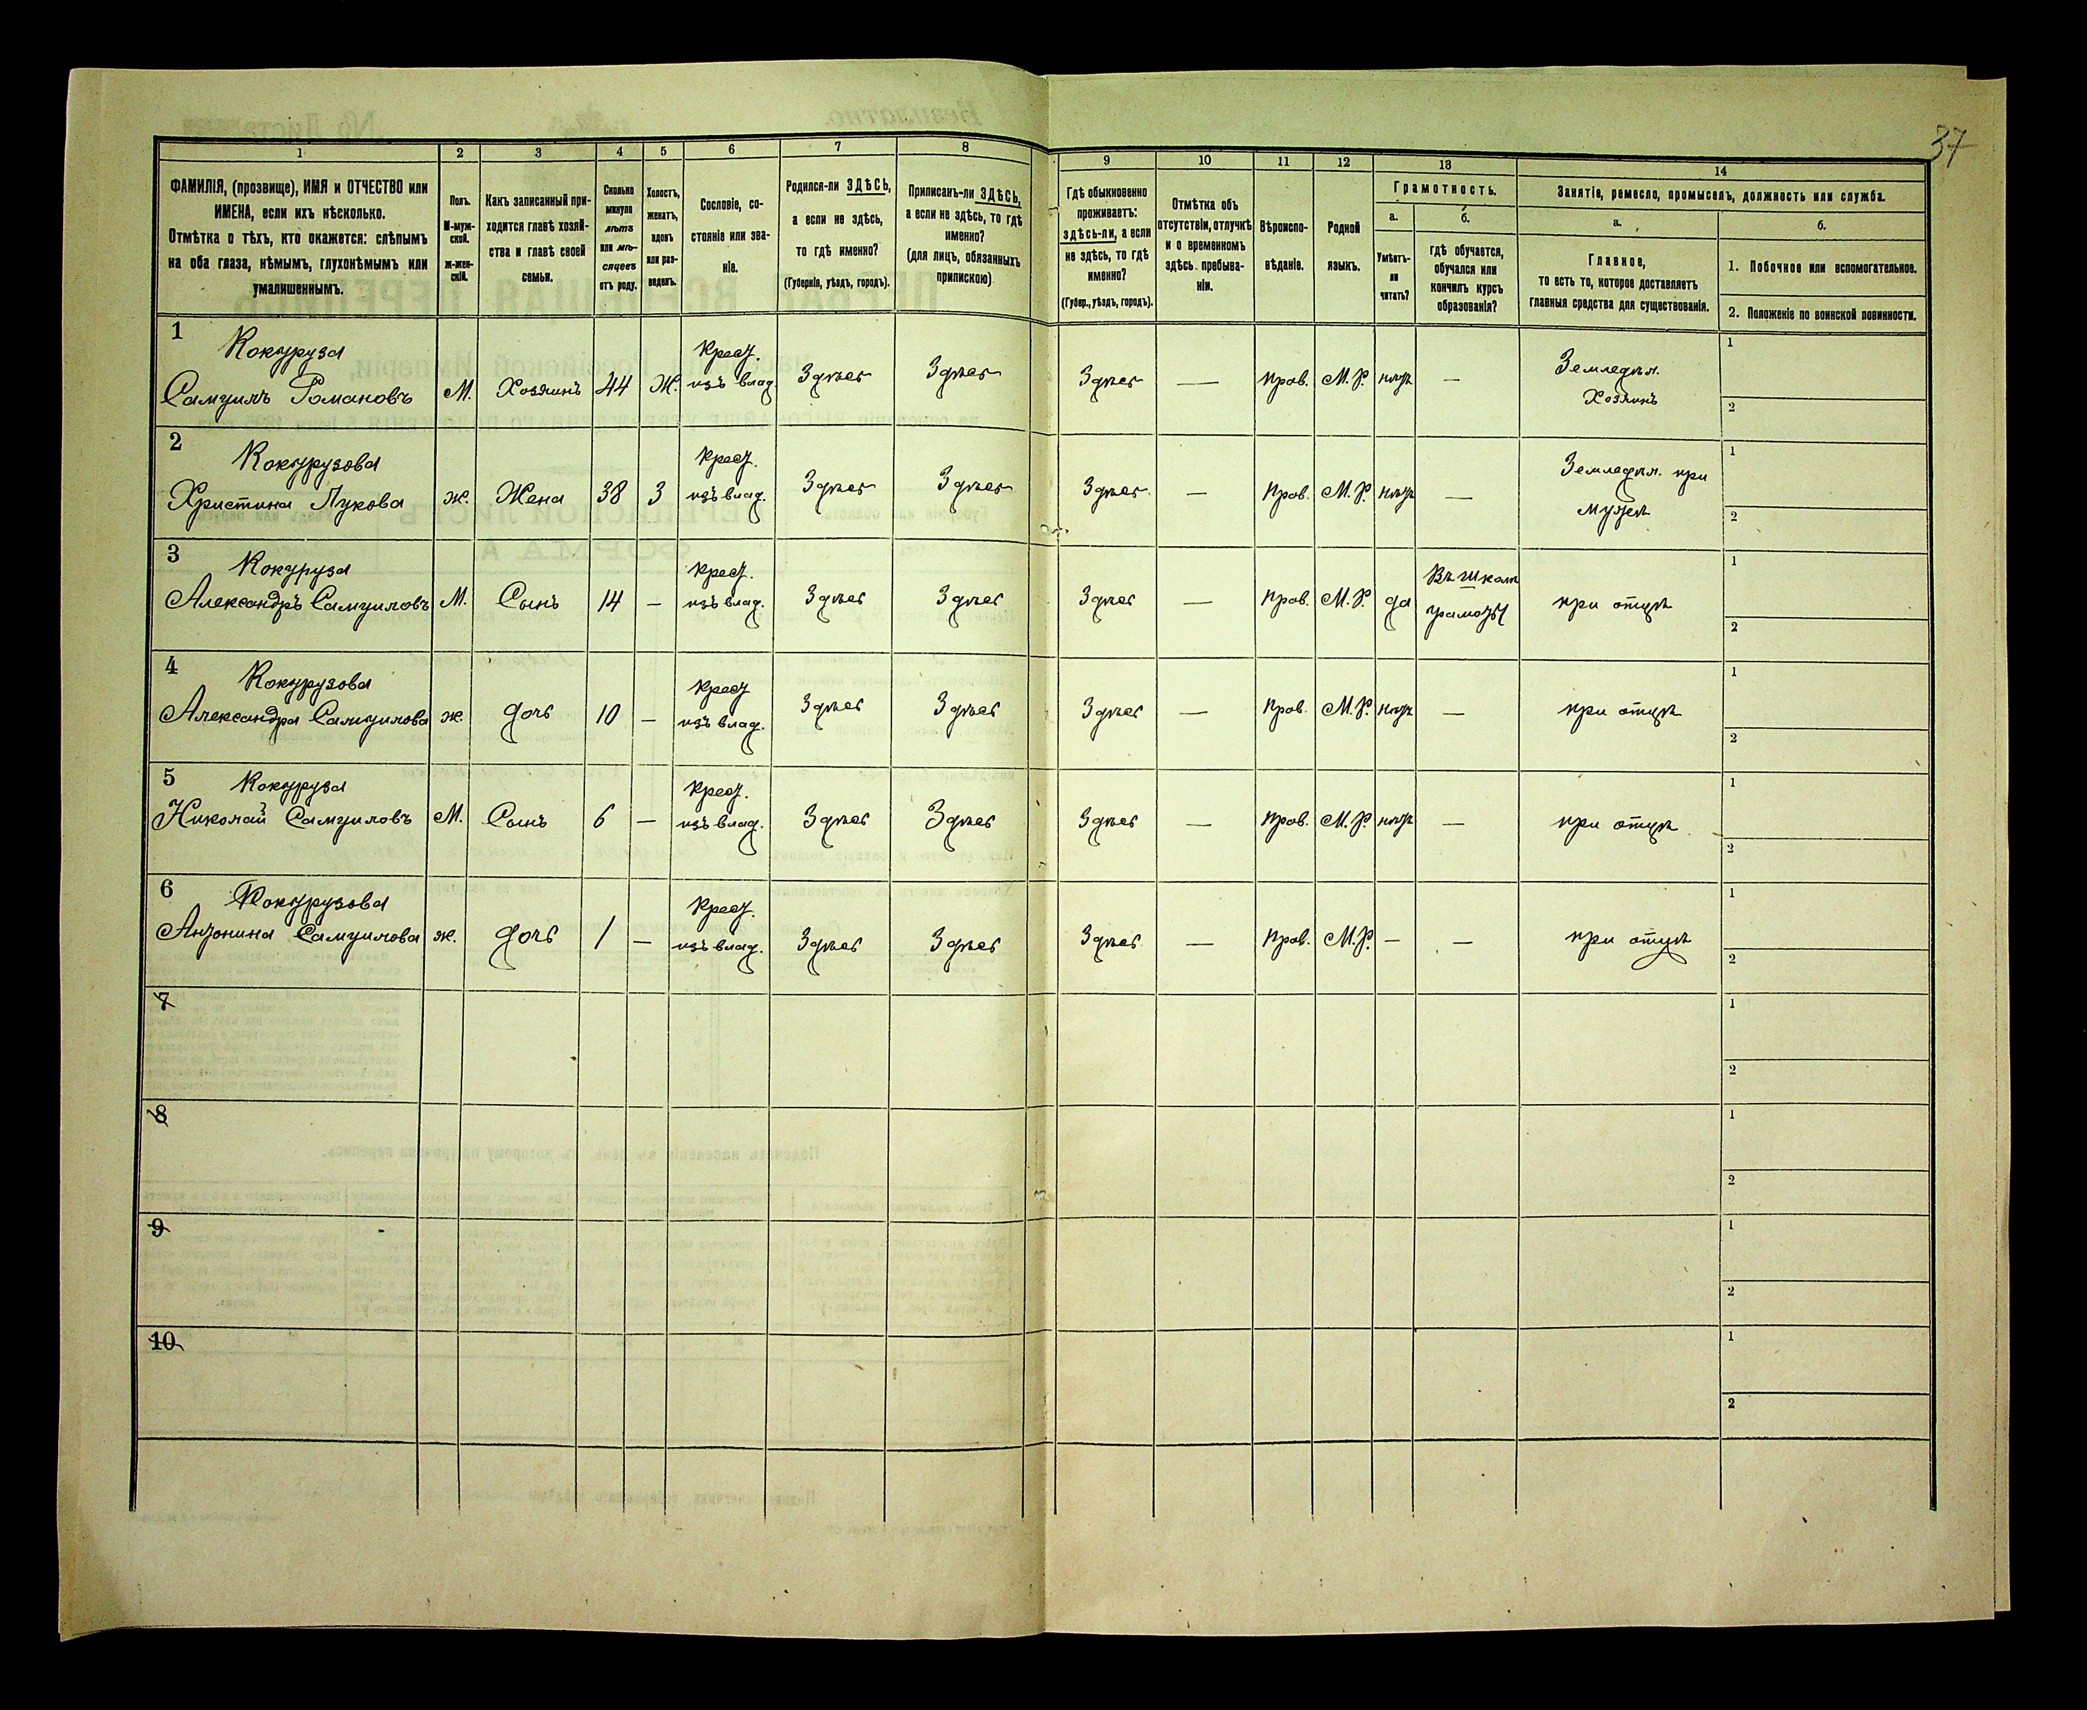 37
1 2 3 4 5 6 7 8 9 10 11 12 13 14
ФАМИЛІЯ, (прозвище), ИМЯ и ОТЧЕСТВО или
ИМЕНА, если ихъ нѣсколько.
Отмѣтка о тѣхъ, кто окажется: слѣпымъ
на оба глаза, нѣмымъ, глухонѣмымъ или
умалишеннымъ.
Полъ.
М-муж-
ской.
ж-жен-
скій.
Какъ записанный при-
ходится главѣ хозяй-
ства и главѣ своей
семьи.
Сколько
минуло
лѣтъ
или мѣ-
сяцевъ
отъ роду.
Холостъ,
женатъ,
вдовъ
или раз-
веденъ.
Сословіе, со-
стояніе или зва-
ніе.
Родился-ли ЗДѢСЬ,
а если не здѣсь,
то гдѣ именно?
(Губернія, уѣздъ, городъ).
Приписанъ-ли ЗДѢСЬ,
а если не здѣсь, то гдѣ
именно?
(для лицъ, обязанныхъ
припискою)
Гдѣ обыкновенно
проживаетъ:
здѣсь-ли, а если
не здѣсь, то гдѣ
именно?
(Губер., уѣздъ, городъ).
Отмѣтка объ
отсутствіи, отлучкѣ
и о временномъ
здѣсь пребыва-
ніи.
Вѣроиспо-
вѣданіе.
Родной
языкъ.
Грамотность.
а.
Умѣетъ-
ли
читать?
б.
гдѣ обучается,
обучался или
кончилъ курсъ
образованія?
Занятіе, ремесло, промыселъ, должность или служба.
а.
Главное,
то есть то, которое доставляетъ
главныя средства для существованія.
б.
1. Побочное или вспомогательное.
2. Положеніе по воинской повинности.
1
Кокуруза
Самуилъ Романовъ
М.
Хозяинъ
44
Ж.
Крест.
изъ влад.
Здѣсь
Здѣсь
Здѣсь
—
Прав.
М. Р.
нѣтъ
—
Земледѣл.
Хозяинъ
1
2
2
Кокурузова
Христина Лукова
ж.
Жена
38
З
Крест.
изъ влад.
Здѣсь
Здѣсь
Здѣсь
—
Прав.
М. Р.
нѣтъ
—
Земледѣл. при
мужѣ
1
2
3
Кокуруза
Александръ Самуиловъ
М.
Сынъ
14
—
Крест.
изъ влад.
Здѣсь
Здѣсь
Здѣсь
—
Прав.
М. Р.
да
Въ школѣ
грамоты
при отцѣ
1
2
4
Кокурузова
Александра Самуилова
ж.
дочь
10
—
Крест
изъ влад.
Здѣсь
Здѣсь
Здѣсь
—
Прав.
М. Р.
нѣтъ
—
при отцѣ
1
2
5
Кокуруза
Николай Самуиловъ
М.
Сынъ
6
—
Крест.
изъ влад.
Здѣсь
Здѣсь
Здѣсь
—
Прав.
М. Р.
нѣтъ
—
при отцѣ
1
2
6
Кокурузова
Антонина Самуилова
ж.
дочь
1
—
Крест.
изъ влад.
Здѣсь
Здѣсь
Здѣсь
—
Прав.
М. Р.
—
—
при отцѣ
1
2
7
1
2
8
1
2
9
1
2
10
1
2